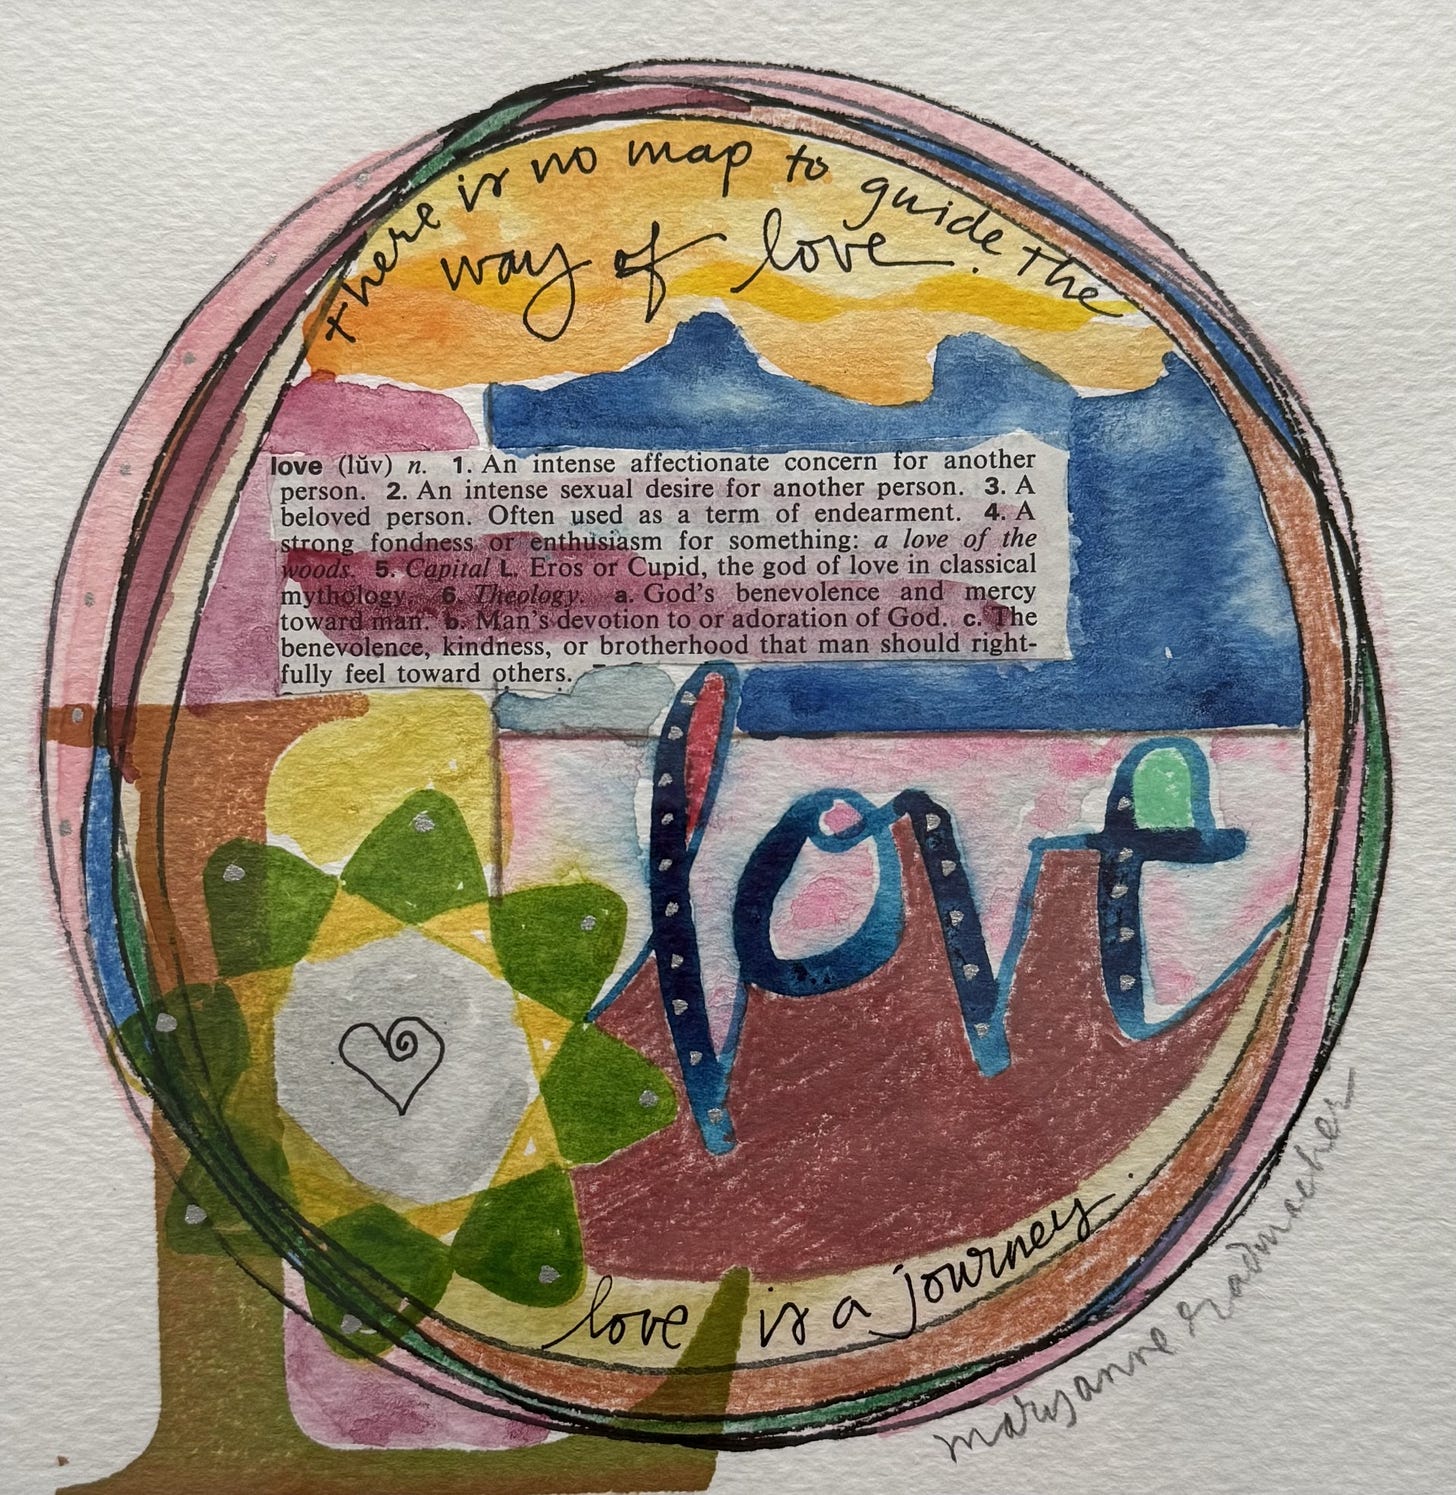 there is no map to guide the
way of love.
love (lŭv) n. 1. An intense affectionate concern for another
person. 2. An intense sexual desire for another person. 3. A
beloved person. Often used as a term of endearment. 4. A
strong fondness or enthusiasm for something: a love of the
woods. 5. Capital L. Eros or Cupid, the god of love in classical
mythology. 6. Theology. a. God's benevolence and mercy
toward man. b. Man's devotion to or adoration of God. c. The
benevolence, kindness, or brotherhood that man should right-
fully feel toward others.
love
love is a journey.
maryanne radmacher